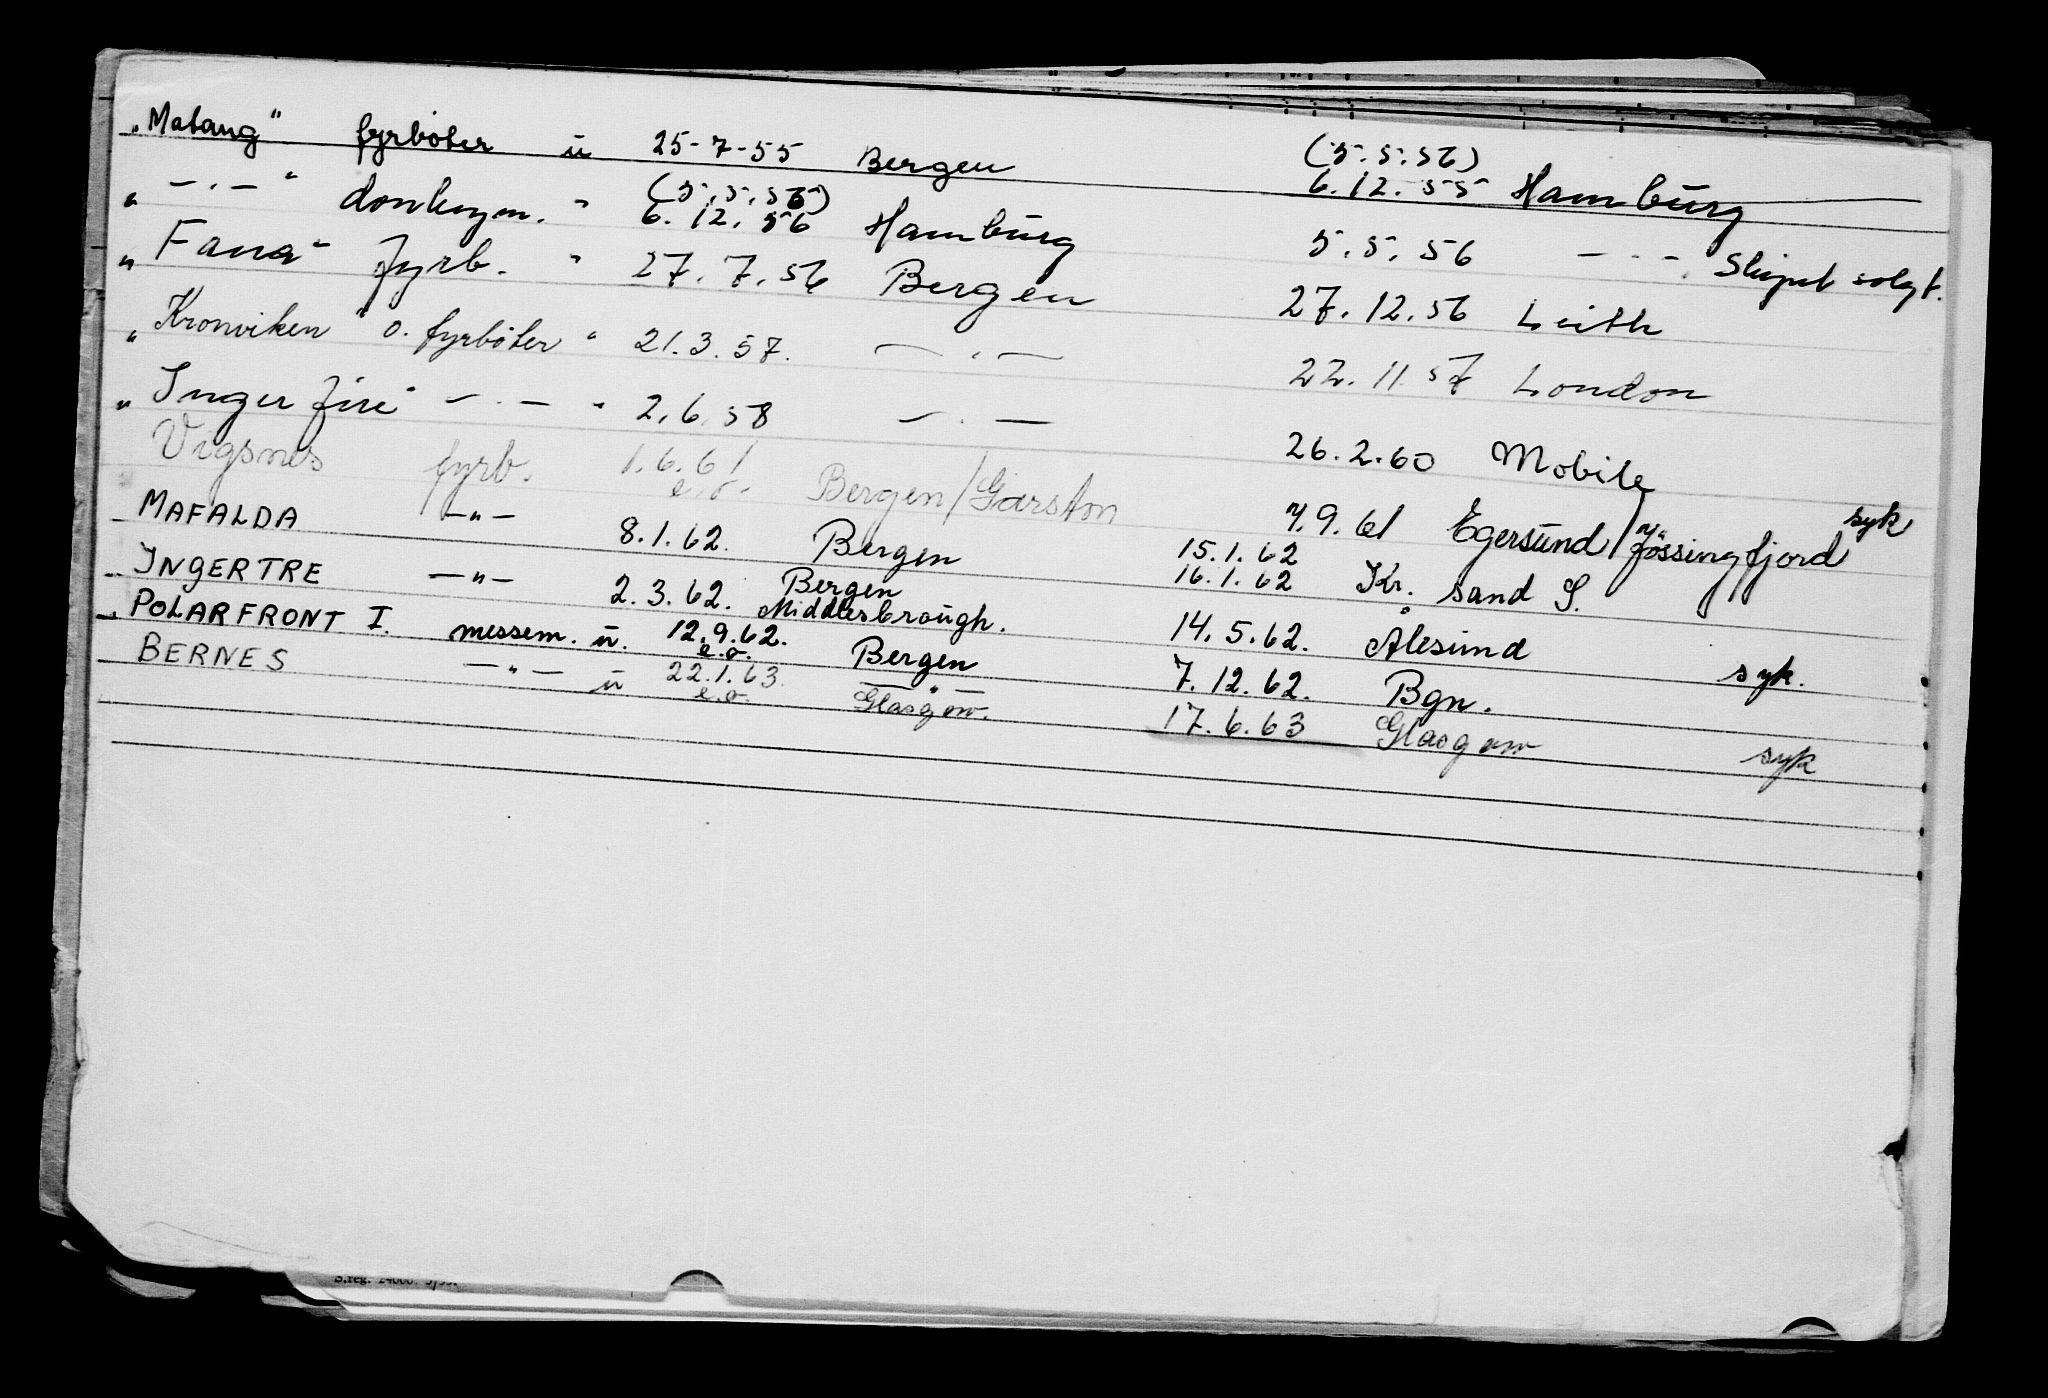 „Matang" fyrbøter u 25-7-55 Bergen (5.5.56) 6.12.55 Hamburg
„ — . — " donkeym. " (5.5.56) 6.12.56 Hamburg 5.5.56 — " — Skipet solgt.
„ Fana" fyrb. " 27.7.56 Bergen 27.12.56 Leith
„ Kronviken" o. fyrbøter " 21.3.57. — " — 22.11.57 London
„ Inger fire" — . — " 2.6.58 — . — 26.2.60 Mobile
Vigsnes fyrb. 1.6.61 e.o. Bergen/Garston 7.9.61 Egersund/Jøssingfjord syk
MAFALDA — " — 8.1.62. Bergen 15.1.62 16.1.62 Kr. sand S.
INGERTRE — " — 2.3.62. Bergen Middlesbrough. 14.5.62. Ålesund
POLARFRONT I. messem. u. 12.9.62. e.o. Bergen 7.12.62. Bgn. syk.
BERNES — " — u 22.1.63. e.o. — " — Glasgow. 17.6.63 Glasgow syk
S.reg. 24000. 3/55.